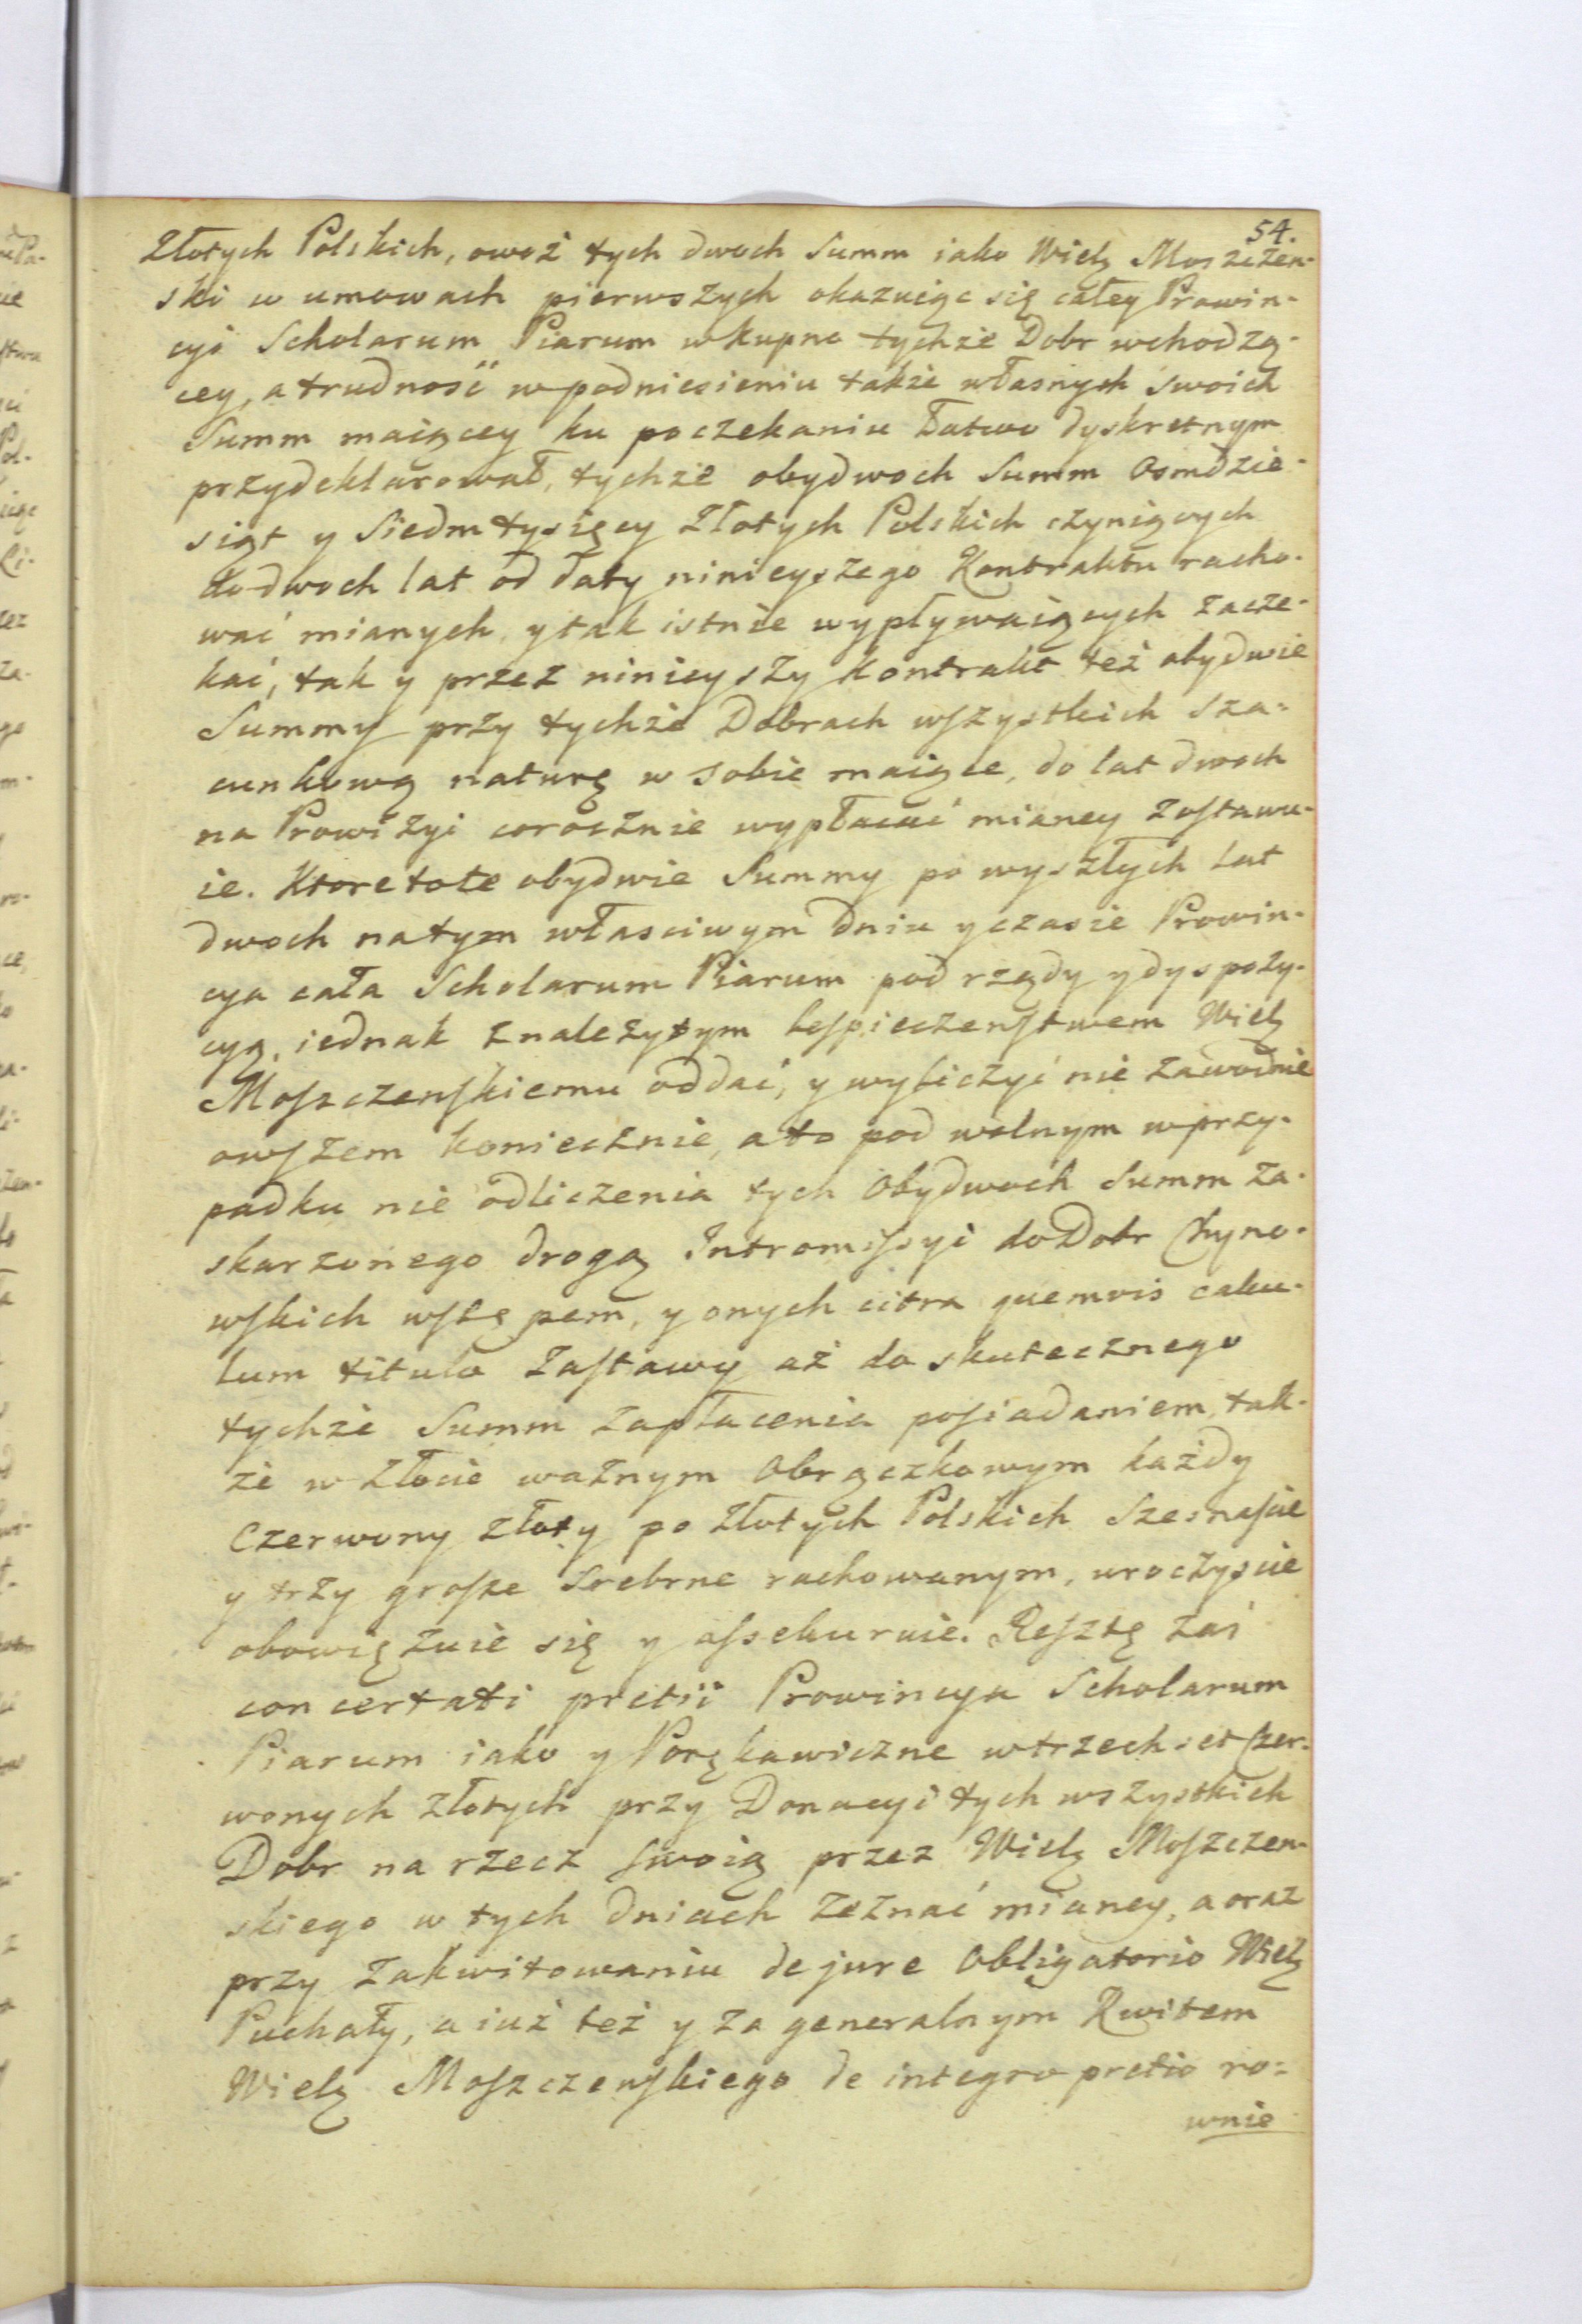 54.
Złotych Polskich, owoż tych dwoch Summ iako Wielę Moszczen-
ski w umowach pierwszych okazuiąc się całey Prowin-
cyi Scholarum Piarum w kupno tychże Dobr wchodzą-
cey, a trudność w podniesieniu także własnych swoich
Summ maiącey ku poczekaniu łatwo dyskretnym
przydeklarował, tychże obydwoch Summ Osmdzie-
siąt y Siedm tysięcy Złotych Polskich czyniących
do dwoch lat od daty ninieyszego Kontraktu racho-
wać mianych, y tak istnie wypływaiących zacze-
kać, tak y przez ninieyszy Kontrakt też obydwie
Summy przy tychże Dobrach wszystkich sza-
cunkową naturę w sobie maiące, do lat dwoch
na Prowizyi corocznie wypłacać mianey zostawu-
ie. Ktore tote obydwie Summy po wyszłych lat
dwoch na tym własciwym dniu y czasie Prowin-
cya cała Scholarum Piarum pod rządy y dyspozy-
cyą, iednak z należytym bespieczeństwem Wielę
Moszczenskiemu oddać, y wyliczyć nie zawodnie
owszem koniecznie, a to pod wolnym w przy-
padku nie odliczenia tych Obydwoch Summ za-
skarzonego drogą Intromissyi do Dobr Chyno-
wskich wstępem, y onych citra quemvis calcu-
lum titulo Zastawy aż do skutecznego
tychże Summ zapłacenia posiadaniem, tak-
że w złocie ważnym Obrączkowym każdy
Czerwony złoty po złotych Polskich Szesnascie
y trzy grosze srebrne rachowanym, uroczyscie
obowięzuie się y assekuruie. Resztę zaś
concertati pretii Prowincya Scholarum
Piarum iako y Porękawiczne w trzech set Czer-
wonych złotych przy Donacyi tych wszystkich
Dobr na rzecz swoią przez Wielę Moszczen-
skiego w tych dniach zeznać mianey, a oraz
przy zakwitowaniu de jure Obligatorio Wielę
Puchały, a iuż też y za generalnym Kwitem
Wielę Moszczenskiego de integro pretio ro-
wnie